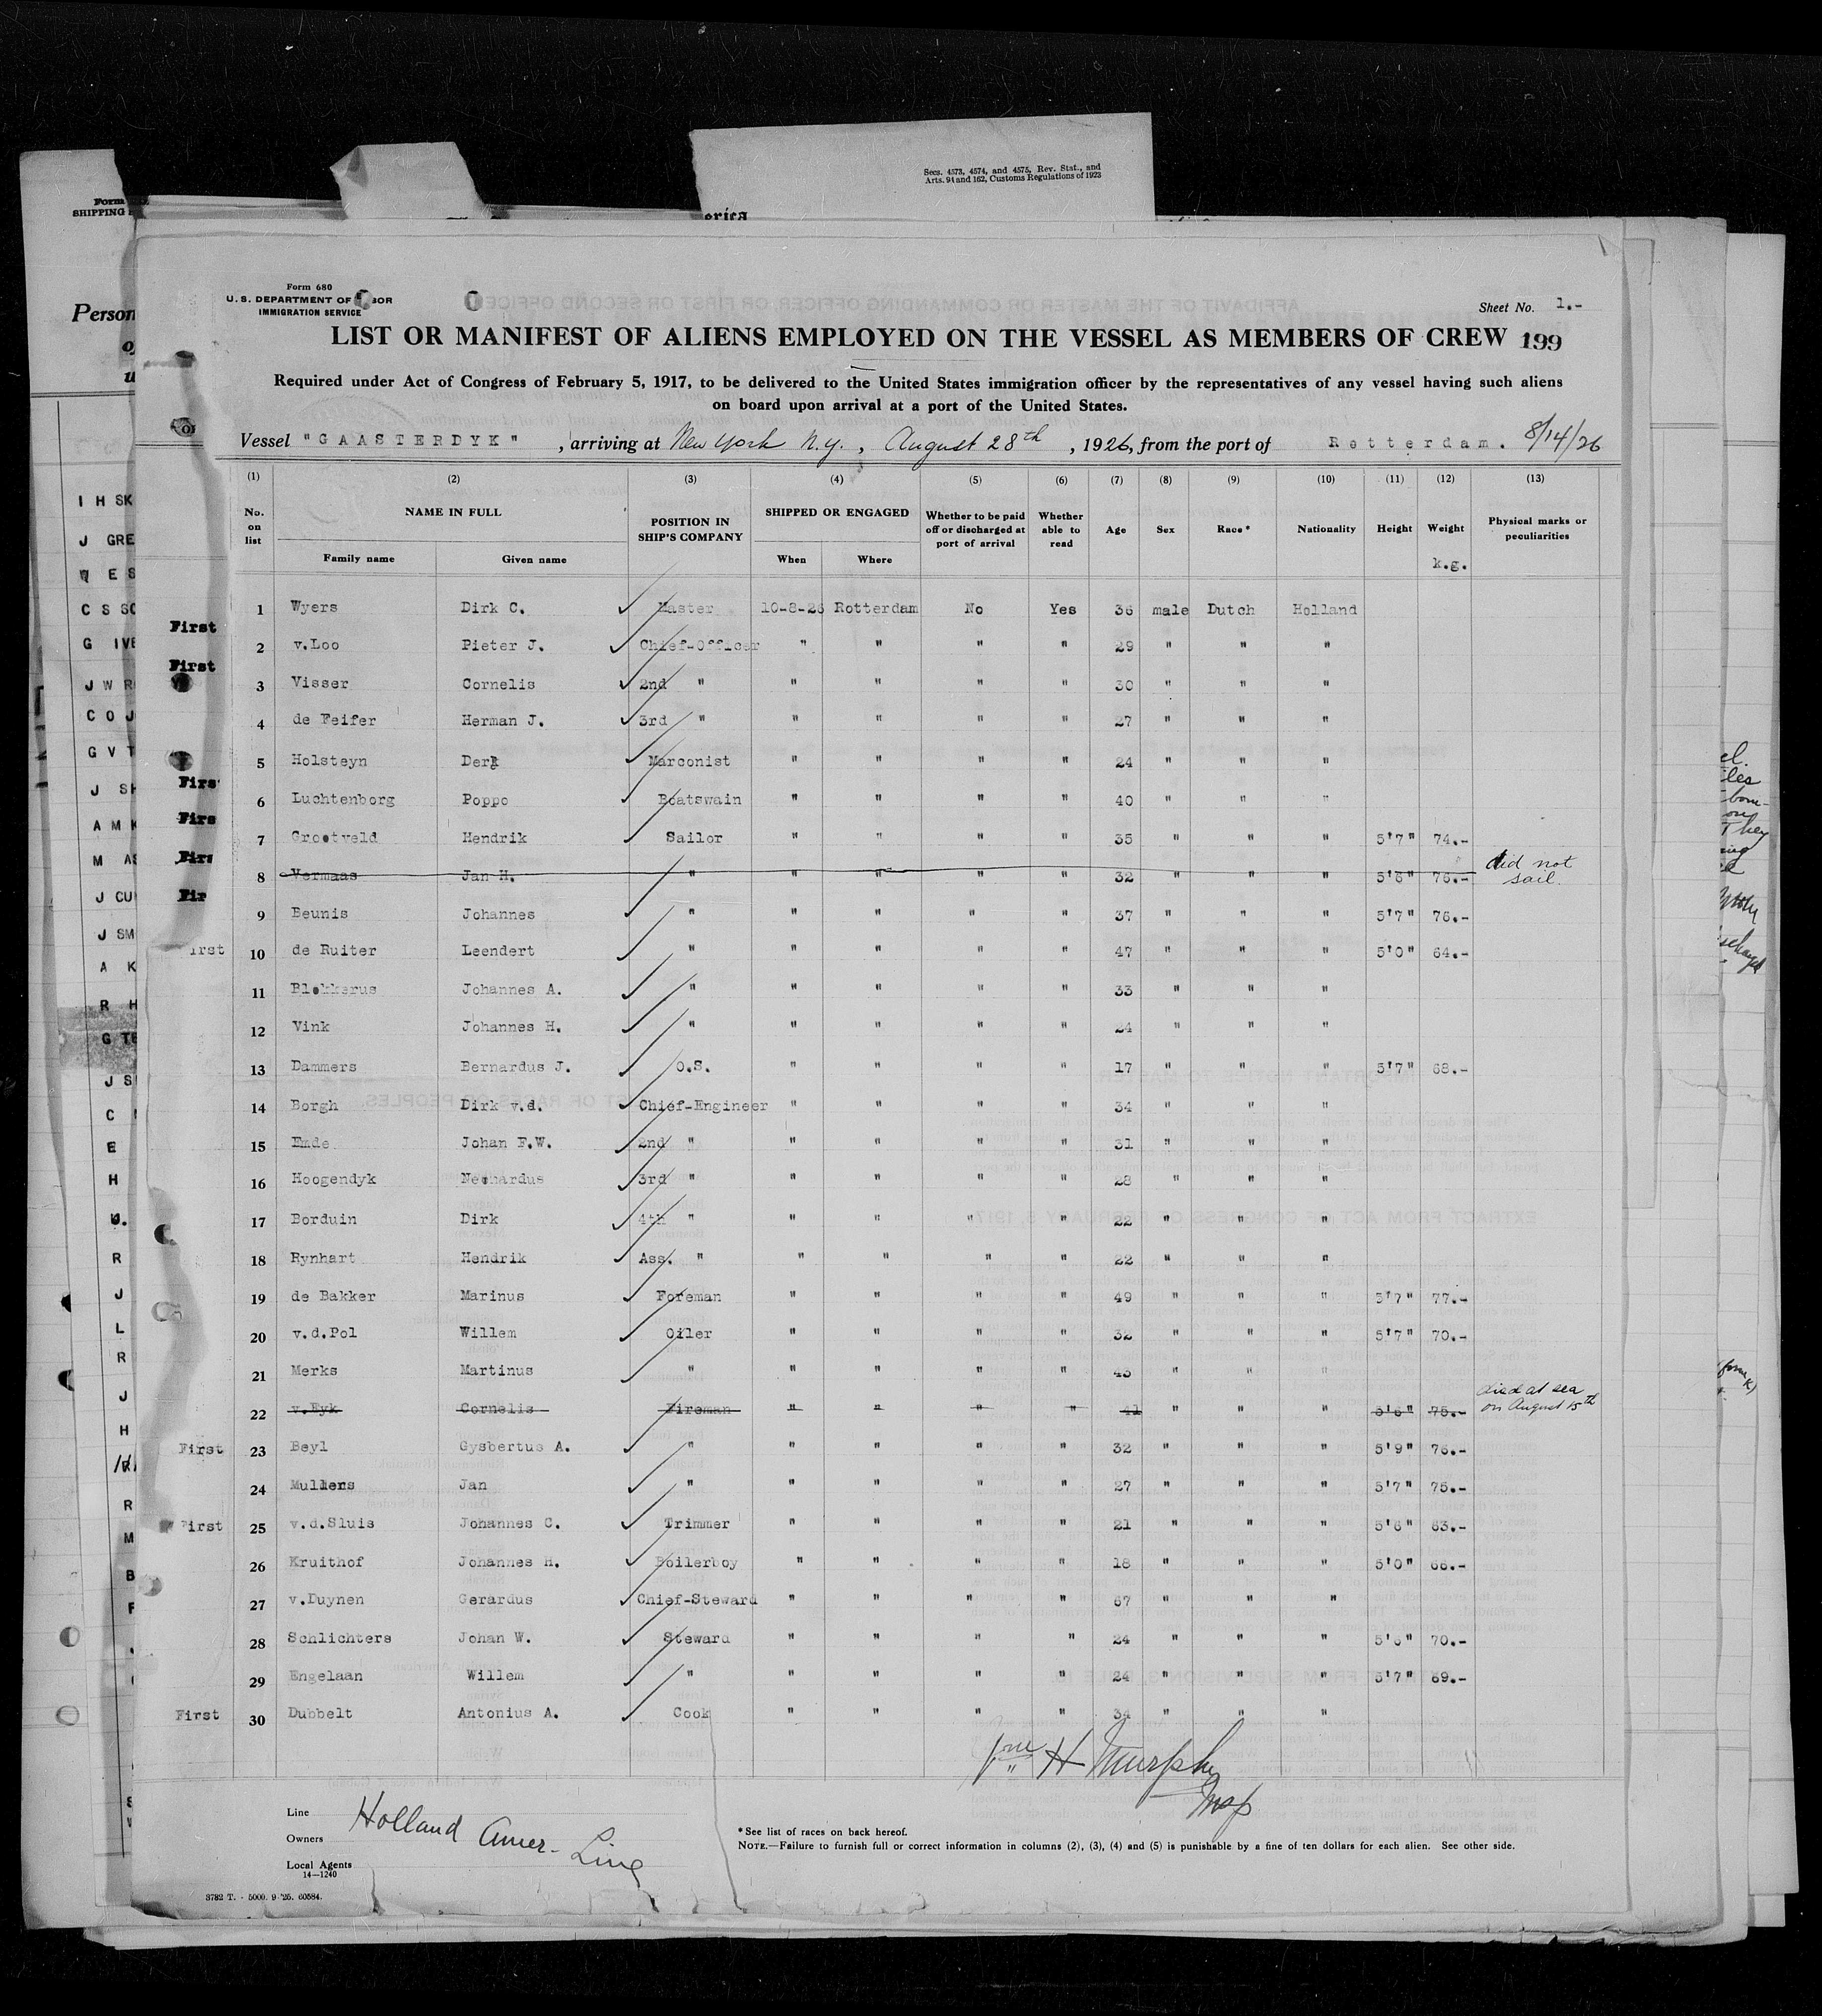 Secs. 4573, 4574, and 4575, Rev. Stat., and
Arts. 91 and 162, Customs Regulations of 1923
erica
Form
SHIPPING
Person
Form 680
U. S. DEPARTMENT OF BOR
IMMIGRATION SERVICE
Sheet No. 1.-
LIST OR MANIFEST OF ALIENS EMPLOYED ON THE VESSEL AS MEMBERS OF CREW 199
Required under Act of Congress of February 5, 1917, to be delivered to the United States immigration officer by the representatives of any vessel having such aliens
on board upon arrival at a port of the United States.
Vessel "GAASTERDYK" , arriving at New York N.Y. , August 28th , 1926, from the port of Rotterdam. 8/14/26
(1) (2) (3) (4) (5) (6) (7) (8) (9) (10) (11) (12) (13)
No. on list NAME IN FULL Family name Given name POSITION IN SHIP'S COMPANY SHIPPED OR ENGAGED When Where Whether to be paid off or discharged at port of arrival Whether able to read Age Sex Race* Nationality Height Weight k.g. Physical marks or peculiarities
1 Wyers Dirk C. Master 10-8-26 Rotterdam No Yes 36 male Dutch Holland
First
2 v.Loo Pieter J. Chief-Officer " " " " 29 " " "
First
3 Visser Cornelis 2nd " " " " " 30 " " "
4 de Feifer Herman J. 3rd " " " " " 27 " " "
5 Holsteyn Derk Marconist " " " " 24 " " "
6 Luchtenborg Poppo Boatswain " " " " 40 " " "
7 Grootveld Hendrik Sailor " " " " 35 " " " 5'7" 74.-
8 Vermaas Jan H. " " " " " 32 " " " 5'6" 76.- did not sail.
9 Beunis Johannes " " " " " 37 " " " 5'7" 76.-
First 10 de Ruiter Leendert " " " " " 47 " " " 5'0" 64.-
11 Blokkerus Johannes A. " " " " " 33 " " "
12 Vink Johannes H. " " " " " 24 " " "
13 Dammers Bernardus J. O.S. " " " " 17 " " " 5'7" 68.-
14 Borgh Dirk v.d. Chief-Engineer " " " " 34 " " "
15 Ende Johan F.W. 2nd " " " " " 31 " " "
16 Hoogendyk 3rd " " " " " 28 " " "
17 Borduin Dirk 4th " " " " " 22 " " "
18 Rynhart Hendrik Ass. " " " " " 22 " " "
19 de Bakker Marinus Foreman " " " " 49 " " " 5'7" 77.-
20 v.d.Pol Willem Oiler " " " " 32 " " " 5'7" 70.-
21 Merks Martinus " " " " " " " "
22 v.Eyk Cornelis Fireman " " " " 41 " " " 5'6" 75.- died at sea on August 15th
First 23 Beyl Gysbertus A. " " " " " 32 " " " 5'9" 76.-
24 Mulders Jan " " " " " 27 " " " 5'7" 75.-
First 25 v.d.Sluis Johannes C. Trimmer " " " " 21 " " " 5'6" 63.-
26 Kruithof Johannes H. Boilerboy " " " " 18 " " " 5'0" 66.-
27 v.Duynen Gerardus Chief-Steward " " " " 67 " " "
28 Schlichters Johan W. Steward " " " " 24 " " " 5'6" 70.-
29 Engelaan Willem " " " " " 24 " " " 5'7" 69.-
First 30 Dubbelt Antonius A. Cook " " " " 34 " " "
H Murphy
Insp
Line Holland Amer- Line
Owners
Local Agents
14—1240
*See list of races on back hereof.
NOTE.—Failure to furnish full or correct information in columns (2), (3), (4) and (5) is punishable by a fine of ten dollars for each alien. See other side.
3782 T. - 5000. 9-'25. 60584.